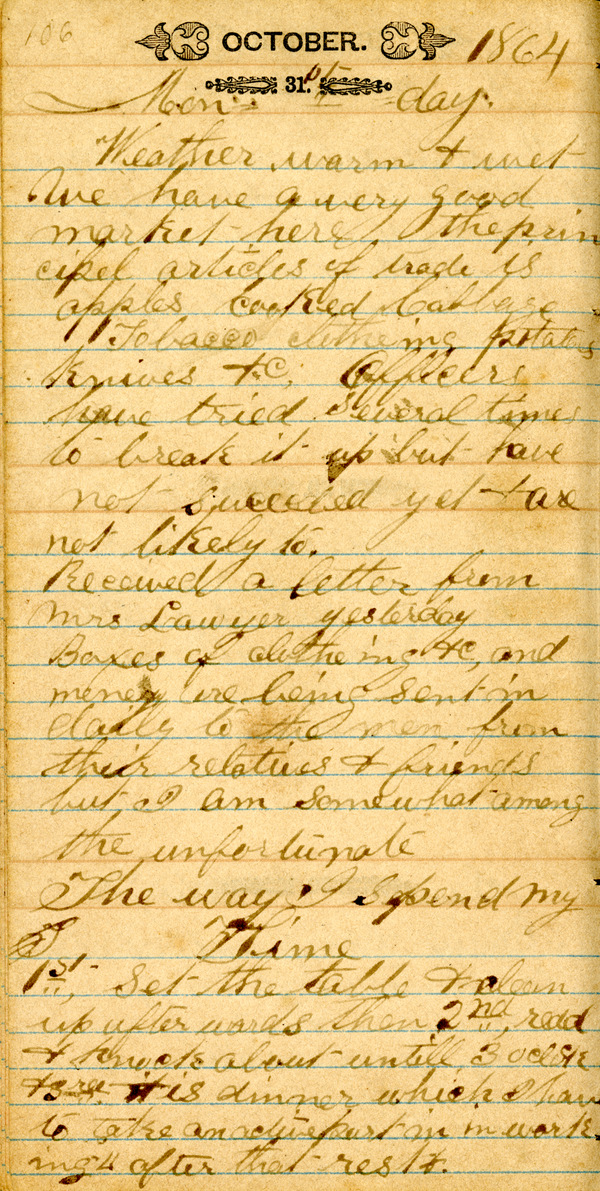 106
OCTOBER. 1864
31. st
Mon day.
Weather warm & wet
We have a very good
market here, the prin
cipel articles of trade is
apples cooked Cabbage
Tobacco clotheing potatoes
Knives &c, Officers
have tried several times
to break it up but have
not succeeded yet & are
not likely to.
Received a letter from
Mrs Lawyer yesterday
Boxes of clotheing &c, and
money are being sent in
daily to the men from
their relatives & friends
but I am somewhat among
the unfortunate
The way I Spend my
Time
1st, Set the table & clean
up afterwards then 2nd, read
& knock about untill 3 oclock
& 3rd it is dinner which I have
to take an active part in in work
ing 4 after that rest.